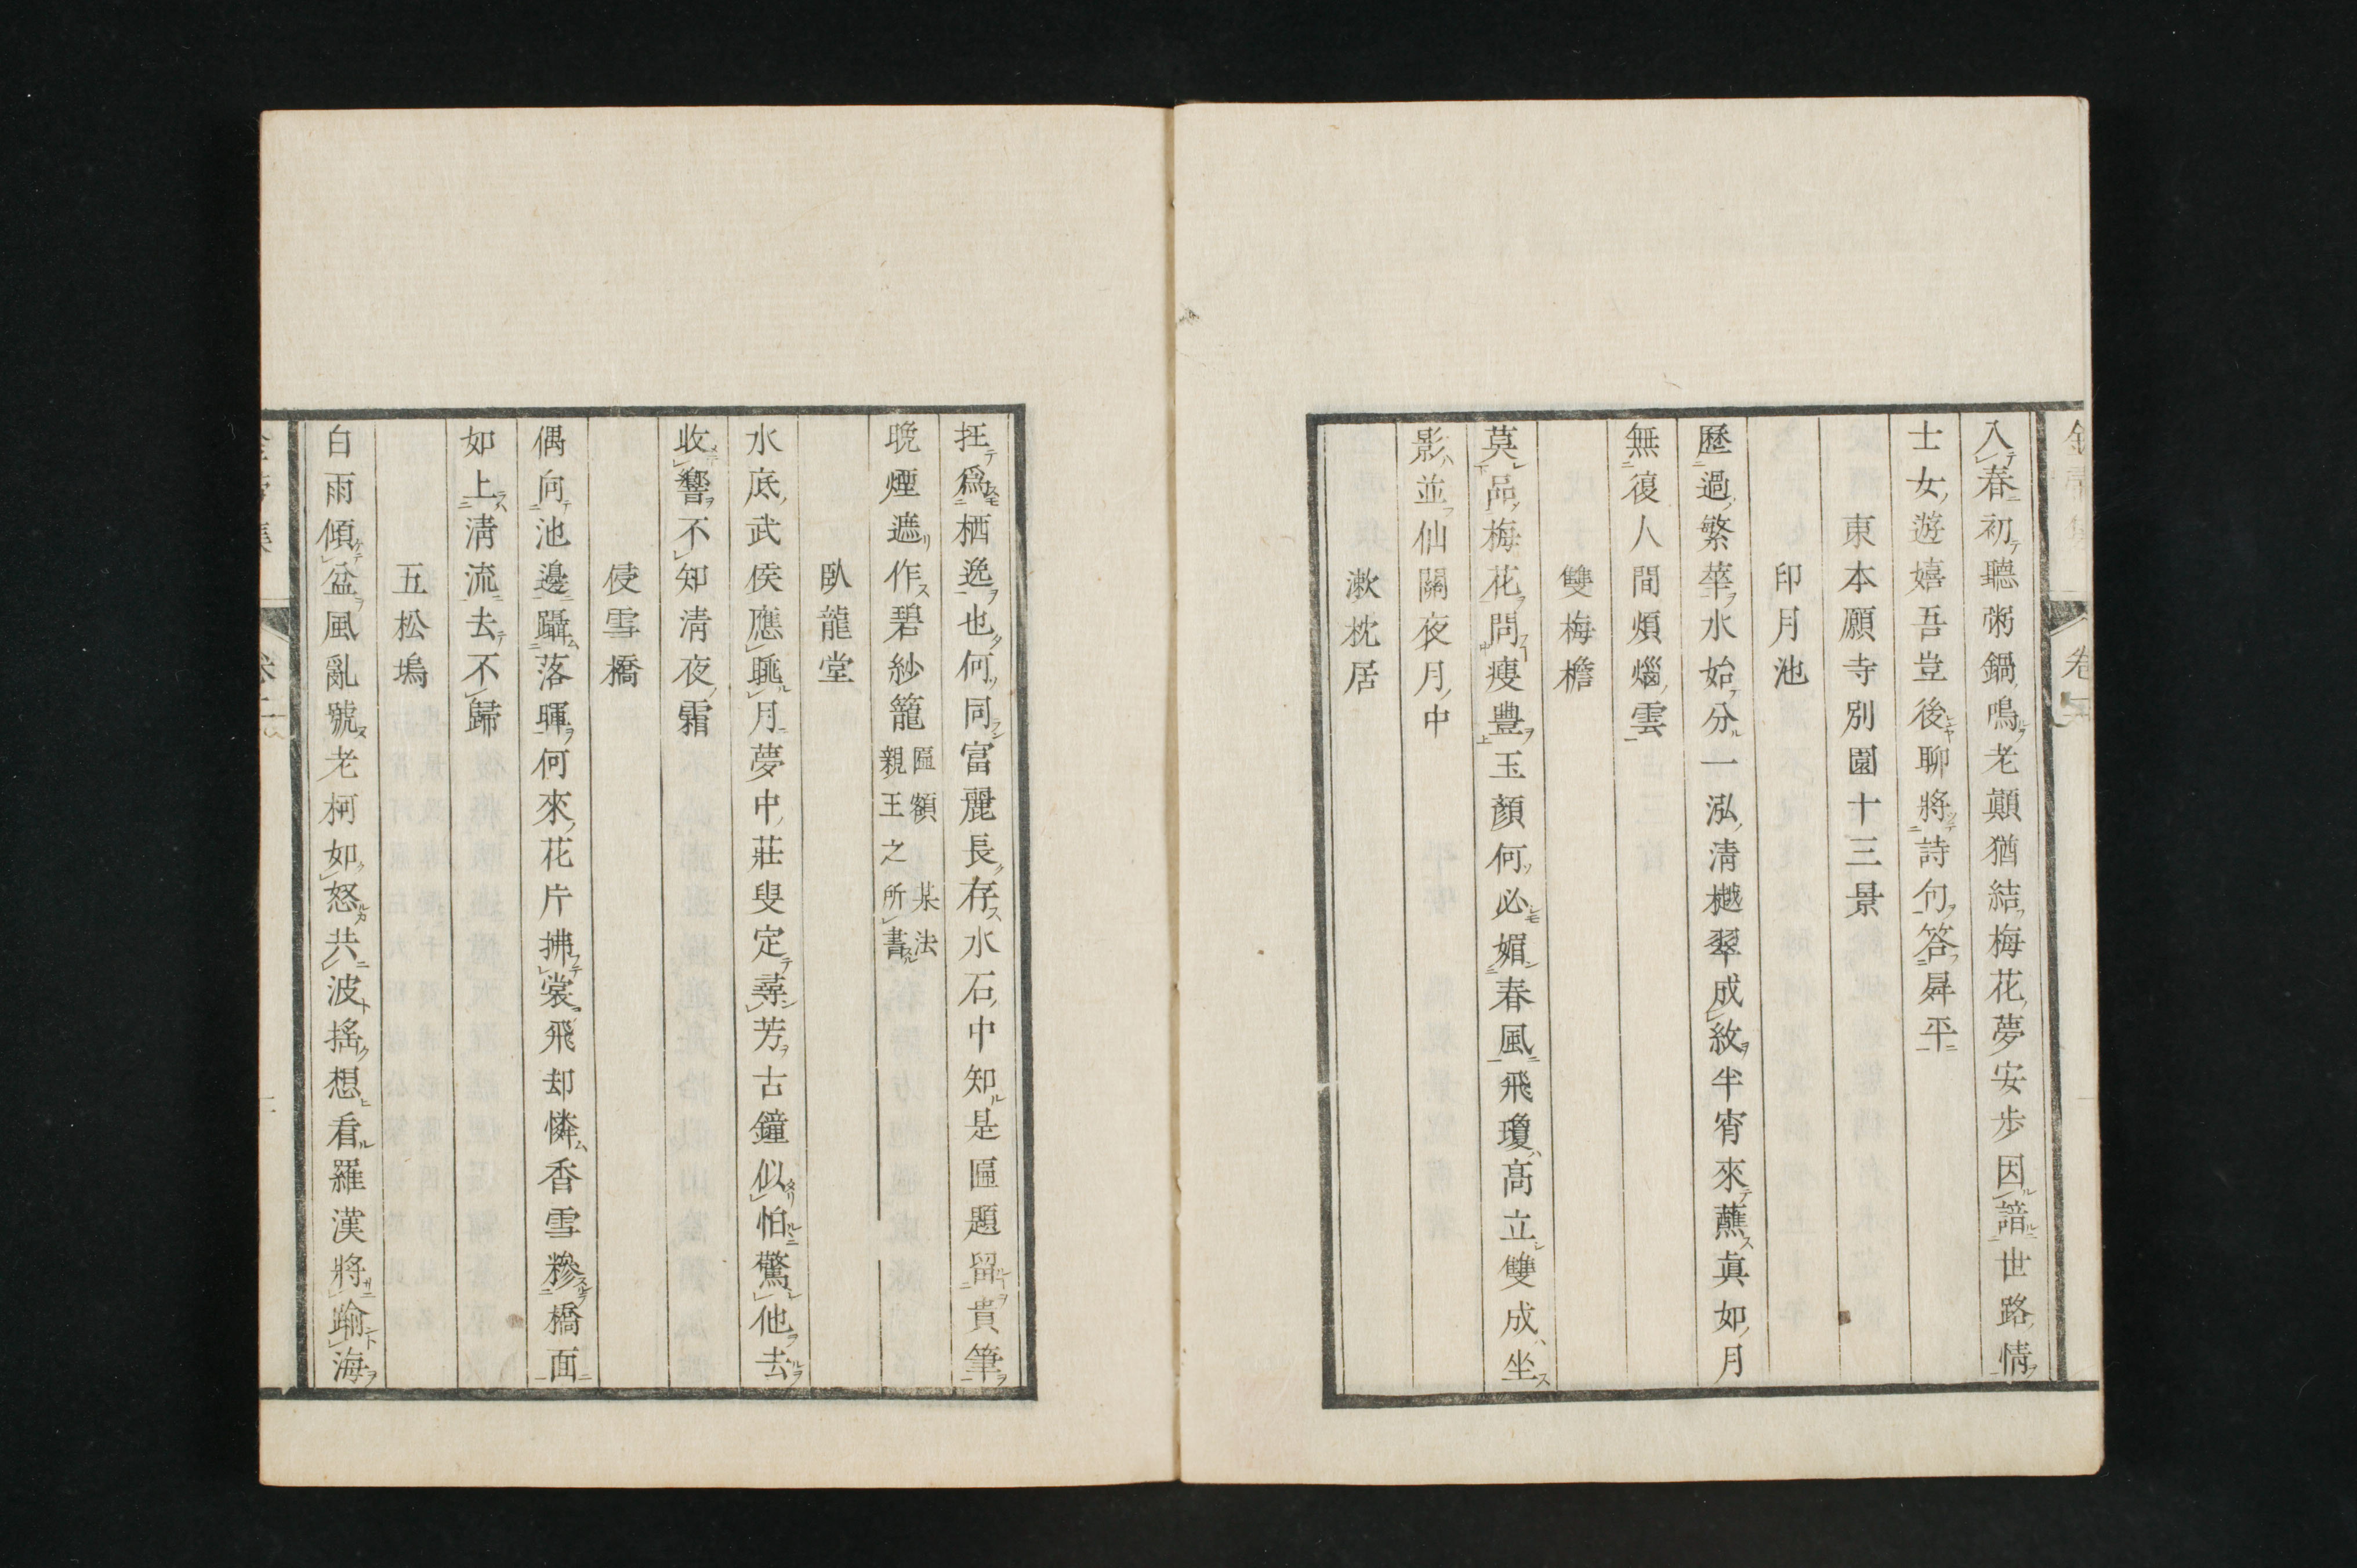 入春初聽粥鍋鳴老顚猶結梅花夢安步因諳世路情
士女遊嬉吾豈後聊將詩句答昇平
東本願寺別園十三景
印月池
歷過繁華水始分一泓淸樾翠成紋半宵來蘸眞如月
無復人間煩惱雲
雙梅檐
莫品梅花問瘦豊玉顏何必媚春風飛瓊高立雙成坐
影並仙關夜月中
漱枕居
抂爲栖逸也何同富麗長存水石中知是匾題留貴筆
晩煙遮作碧紗籠匾額某法親王之所書
臥龍堂
水底武侯應眺月夢中莊叟定尋芳古鐘似怕驚他去
收響不知淸夜霜
侵雪橋
偶向池邊躡落暉何來花片拂裳飛却憐香雪糝橋面
如上淸流去不歸
五松塢
白雨傾盆風亂號老柯如怒共波搖想看羅漢將踰海